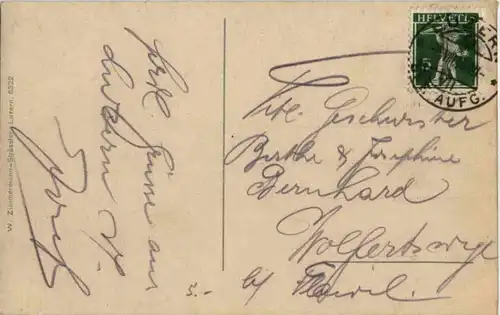 Herzl. Grüsse aus
Luzern
Josef
W. Zimmermann-Strässle, Luzern. 6322
3.-
HELVETIA
5
AUFG.
Titl. Geschwister
Bertha & Josephine
Bernhard
Wolfertswyl
b/ Flawil.